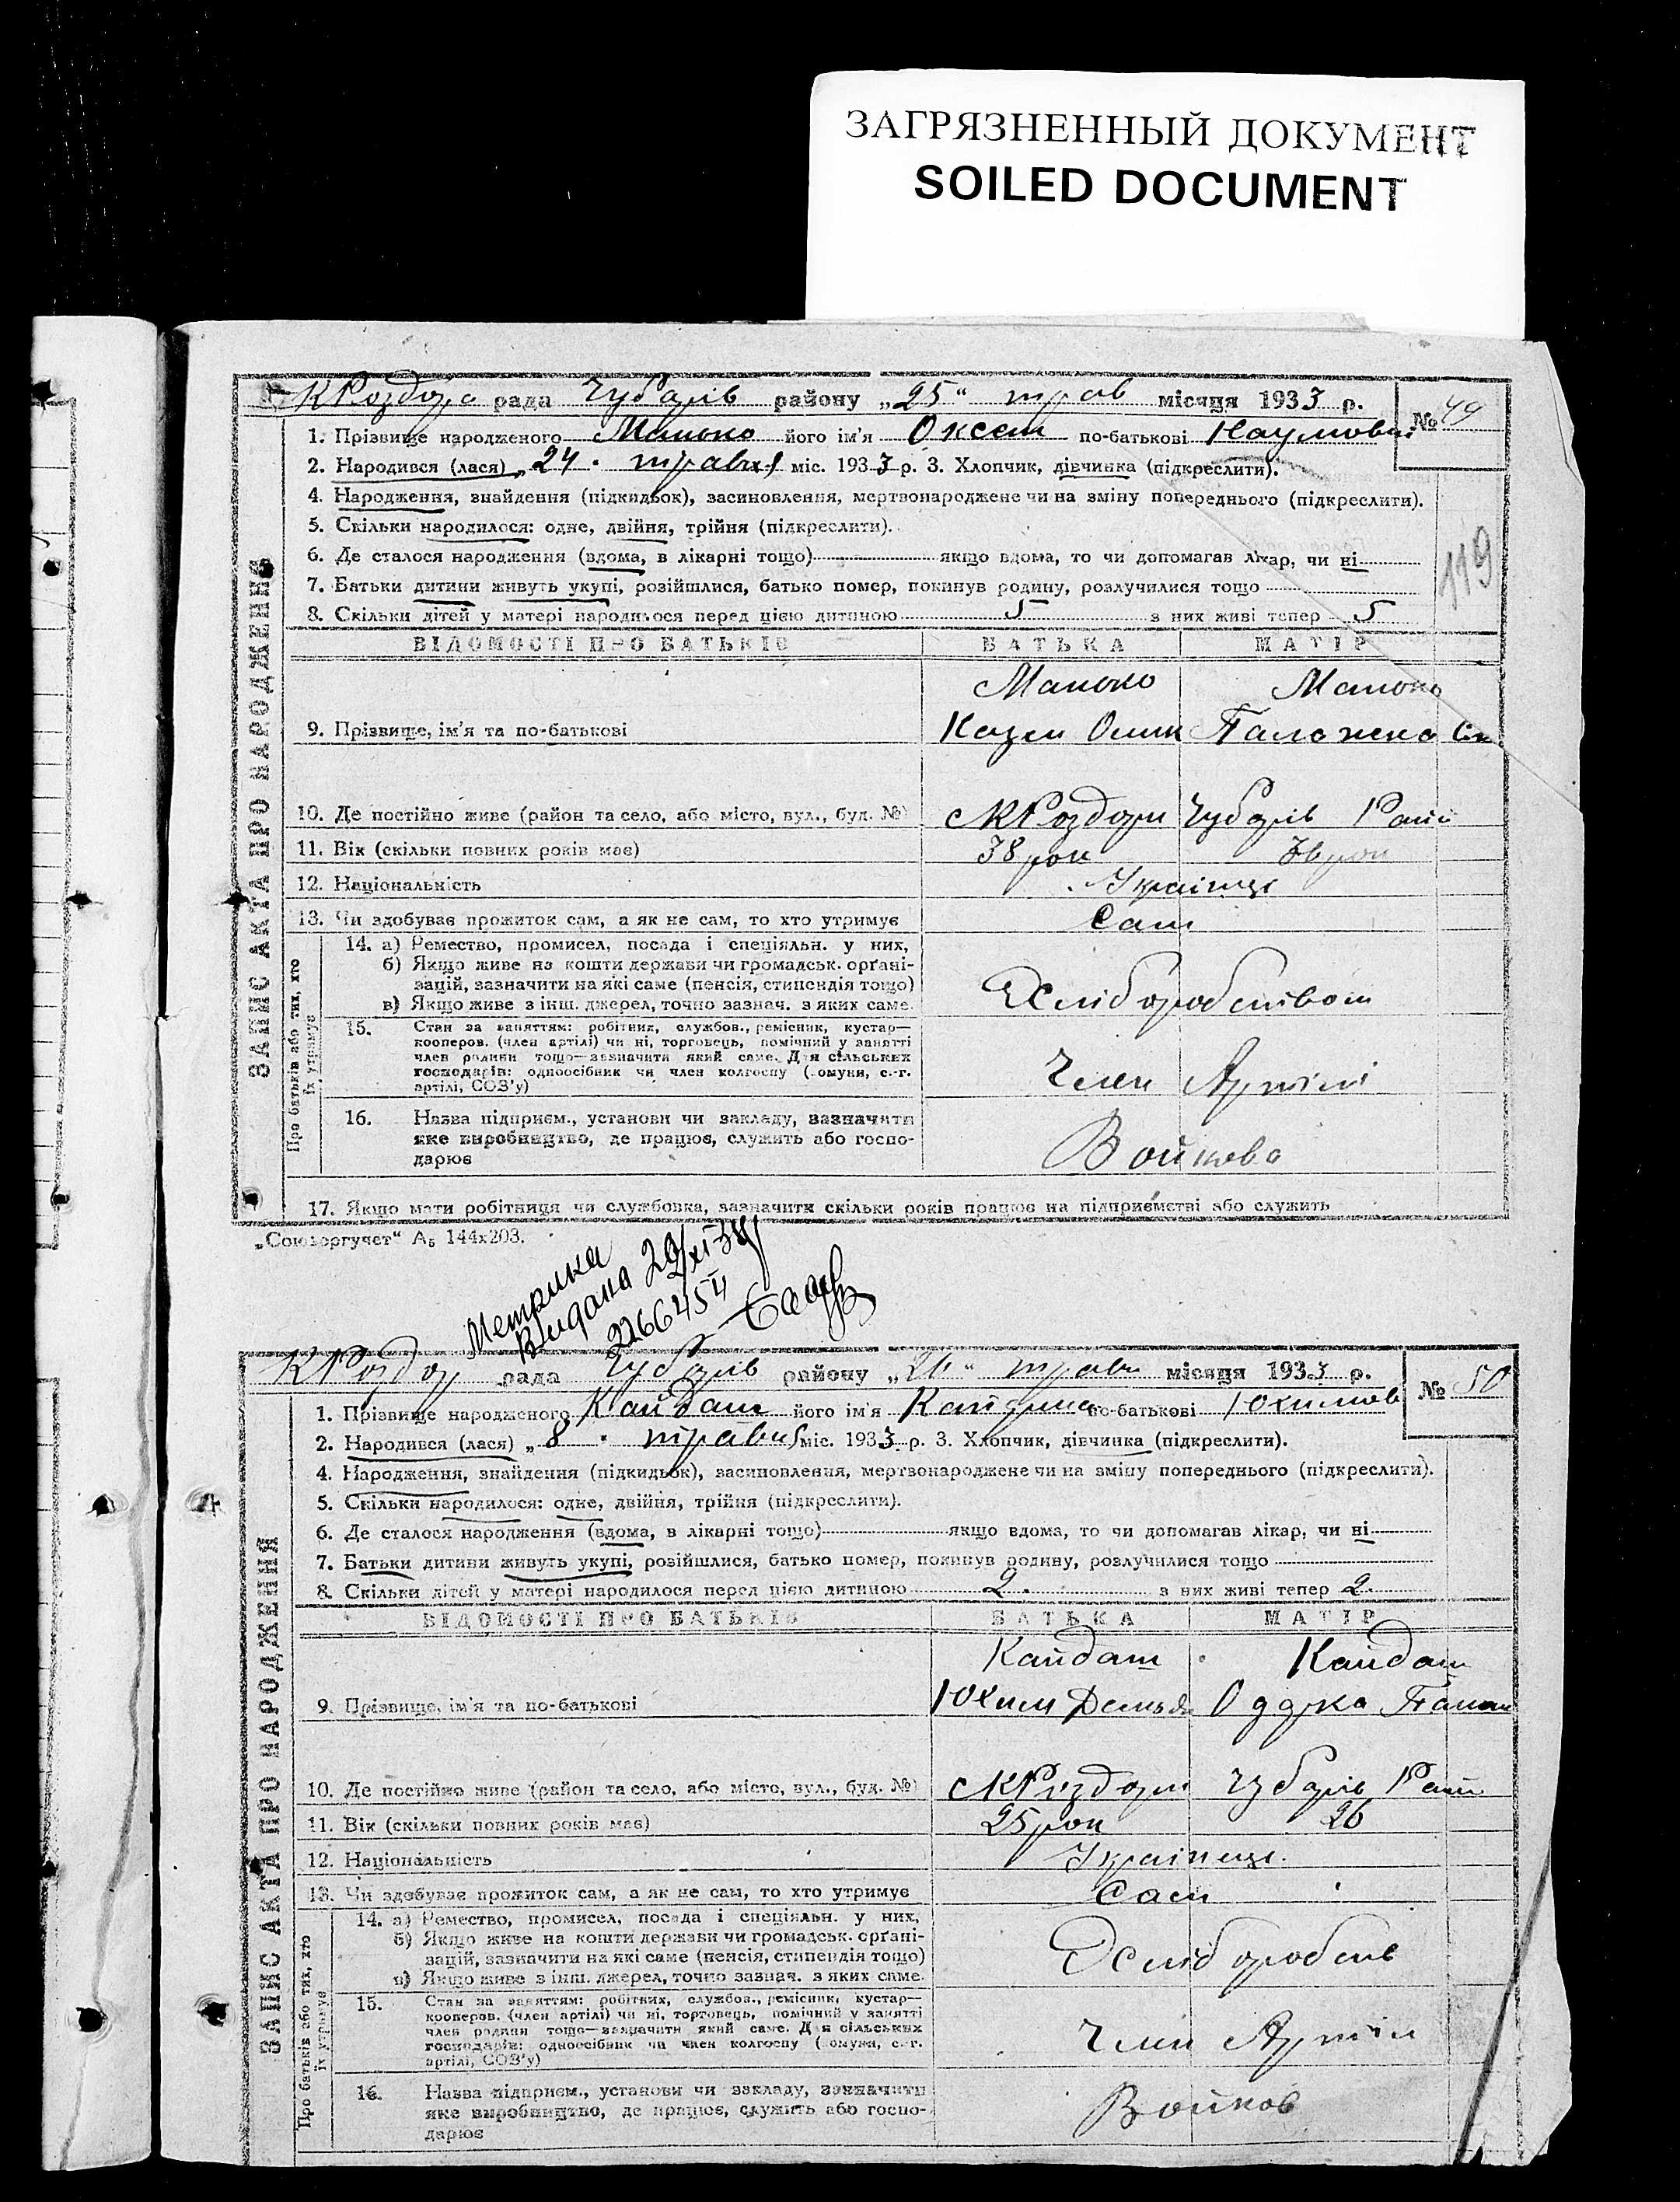 ЗАГРЯЗНЕННЫЙ ДОКУМЕНТ
SOILED DOCUMENT
КРоздора рада Чубарів району „25“ трав місяця 1933 р.
№ 49
1. Прізвище народженого Манько його ім'я Оксен по-батькові Наумович
2. Народився (лася) „24 . травня міс. 1933 р. 3. Хлопчик, дівчинка (підкреслити).
4. Народження, знайдення (підкидьок), засиновлення, мертвонароджене чи на зміну попереднього (підкреслити).
5. Скільки народилося: одне, двійня, трійня (підкреслити).
6. Де сталося народження (вдома, в лікарні тощо) якщо вдома, то чи допомагав лікар, чи ні
119
7. Батьки дитини живуть укупі, розійшлися, батько помер, покинув родину, розлучилися тощо
8. Скільки дітей у матері народилося перед цією дитиною 5 з них живі тепер 5
ВІДОМОСТІ ПРО БАТЬКІВ БАТЬКА МАТІР
Манько Манько
9. Прізвище, ім'я та по-батькові
10. Де постійно живе (район та село, або місто, вул., буд. №) с КРоздори Чубарів Рай
11. Вік (скільки повних років має) 38 рок
12. Національність Українці
13. Чи здобуває прожиток сам, а як не сам, то хто утримує Сам
14. а) Ремество, промисел, посада і спеціяльн. у них,
б) Якщо живе на кошти держави чи громадськ. орґані-
зацій, зазначити на які саме (пенсія, стипендія тощо)
в) Якщо живе з інш. джерел, точно зазнач. з яких саме.
Хліборобством
15. Стан за заняттям: робітник, службов., ремісник, кустар—
кооперов. (член артілі) чи ні, торговець, помічний у занятті
член родини тощо—зазначити який саме. Для сільських
господарів: одноосібник чи член колгоспу (комуни, с.-г.
артілі, СОЗ'у)
Член Артілі
16. Назва підприєм., установи чи закладу, зазначити
яке виробництво, де працює, служить або госпо-
дарює
Войкова
17. Якщо мати робітниця чи службовка, зазначити скільки років працює на підприємстві або служить
ЗАПИС АКТА ПРО НАРОДЖЕННЯ
Про батьків або тих, хто
їх утримує
„Союзоргучет“ А5 144х203.
Метрика
Видана 29/XI 38
2266454
КРоздор рада Чубарів району „26“ трав місяця 1933 р.
№ 50
1. Прізвище народженого Кайдаш його ім'я Катерина по-батькові Юхимов
2. Народився (лася) „8 . травня міс. 1933 р. 3. Хлопчик, дівчинка (підкреслити).
4. Народження, знайдення (підкидьок), засиновлення, мертвонароджене чи на зміну попереднього (підкреслити).
5. Скільки народилося: одне, двійня, трійня (підкреслити).
6. Де сталося народження (вдома, в лікарні тощо) якщо вдома, то чи допомагав лікар, чи ні
7. Батьки дитини живуть укупі, розійшлися, батько помер, покинув родину, розлучилися тощо
8. Скільки дітей у матері народилося перед цією дитиною 2. з них живі тепер 2.
ВІДОМОСТІ ПРО БАТЬКІВ БАТЬКА МАТІР
Кайдаш Кайдаш
9. Прізвище, ім'я та по-батькові Юхим Демья
10. Де постійно живе (район та село, або місто, вул., буд. №) с КРоздори Чубарів Рай
11. Вік (скільки повних років має) 25 рок 26
12. Національність Українці.
13. Чи здобуває прожиток сам, а як не сам, то хто утримує Сам
14. а) Ремество, промисел, посада і спеціяльн. у них,
б) Якщо живе на кошти держави чи громадськ. орґані-
зацій, зазначити на які саме (пенсія, стипендія тощо)
в) Якщо живе з інш. джерел, точно зазнач. з яких саме.
Хліборобств
15. Стан за заняттям: робітник, службов., ремісник, кустар—
кооперов. (член артілі) чи ні, торговець, помічний у занятті
член родини тощо—зазначити який саме. Для сільських
господарів: одноосібник чи член колгоспу (комуни, с.-г.
артілі, СОЗ'у)
Член Артіл
16. Назва підприєм., установи чи закладу, зазначити
яке виробництво, де працює, служить або госпо-
дарює
Войков
ЗАПИС АКТА ПРО НАРОДЖЕННЯ
Про батьків або тих, хто
їх утримує